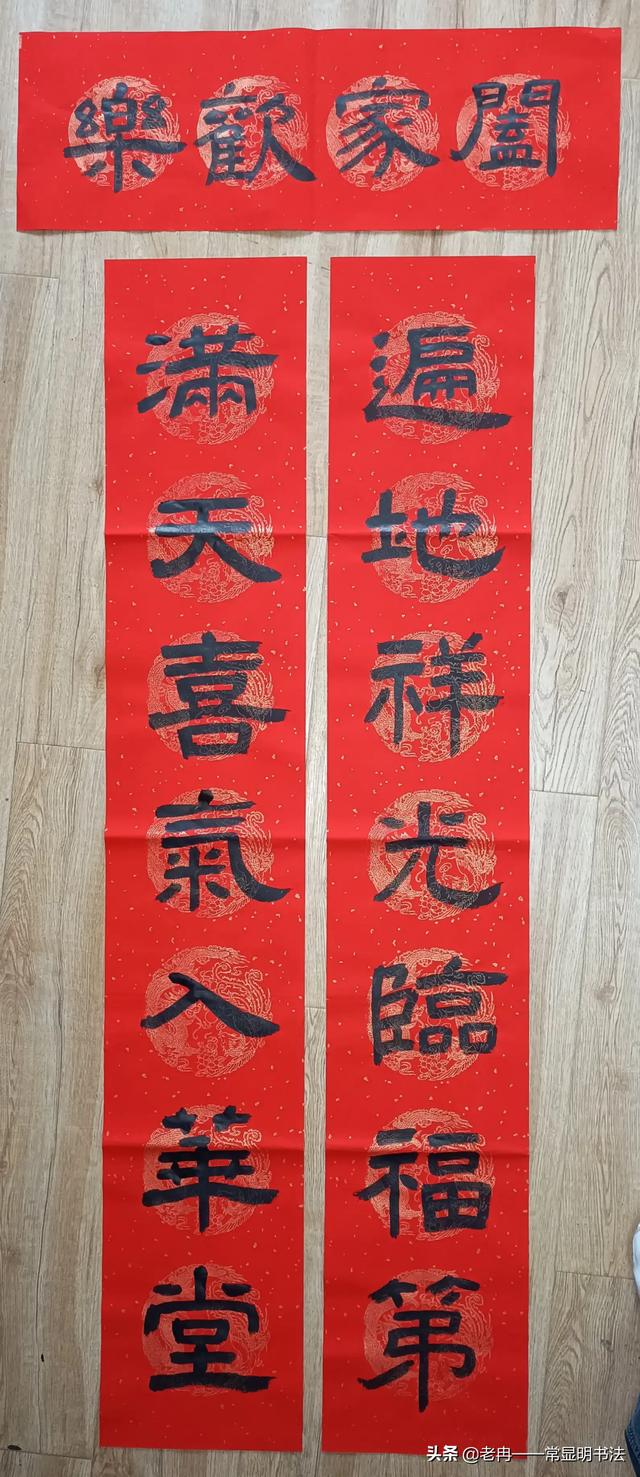 闔家歡樂
遍地祥光臨福第
滿天喜氣入華堂
头条 @老冉——常显明书法